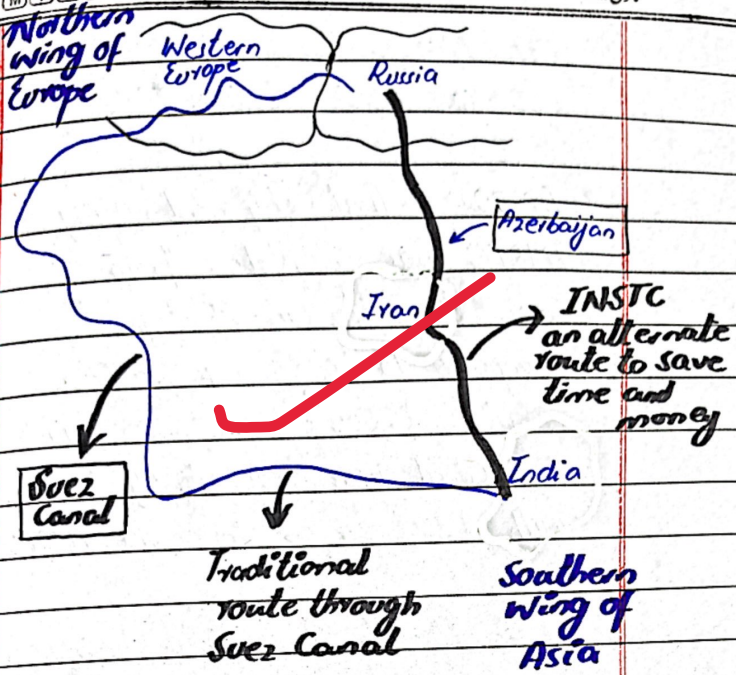 Northern
wing of
Europe
Western
Europe
Russia
Azerbaijan
Iran
INSTC
an alternate
route to save
time and
money
Suez
Canal
India
Traditional
route through
Suez Canal
Southern
wing of
Asia